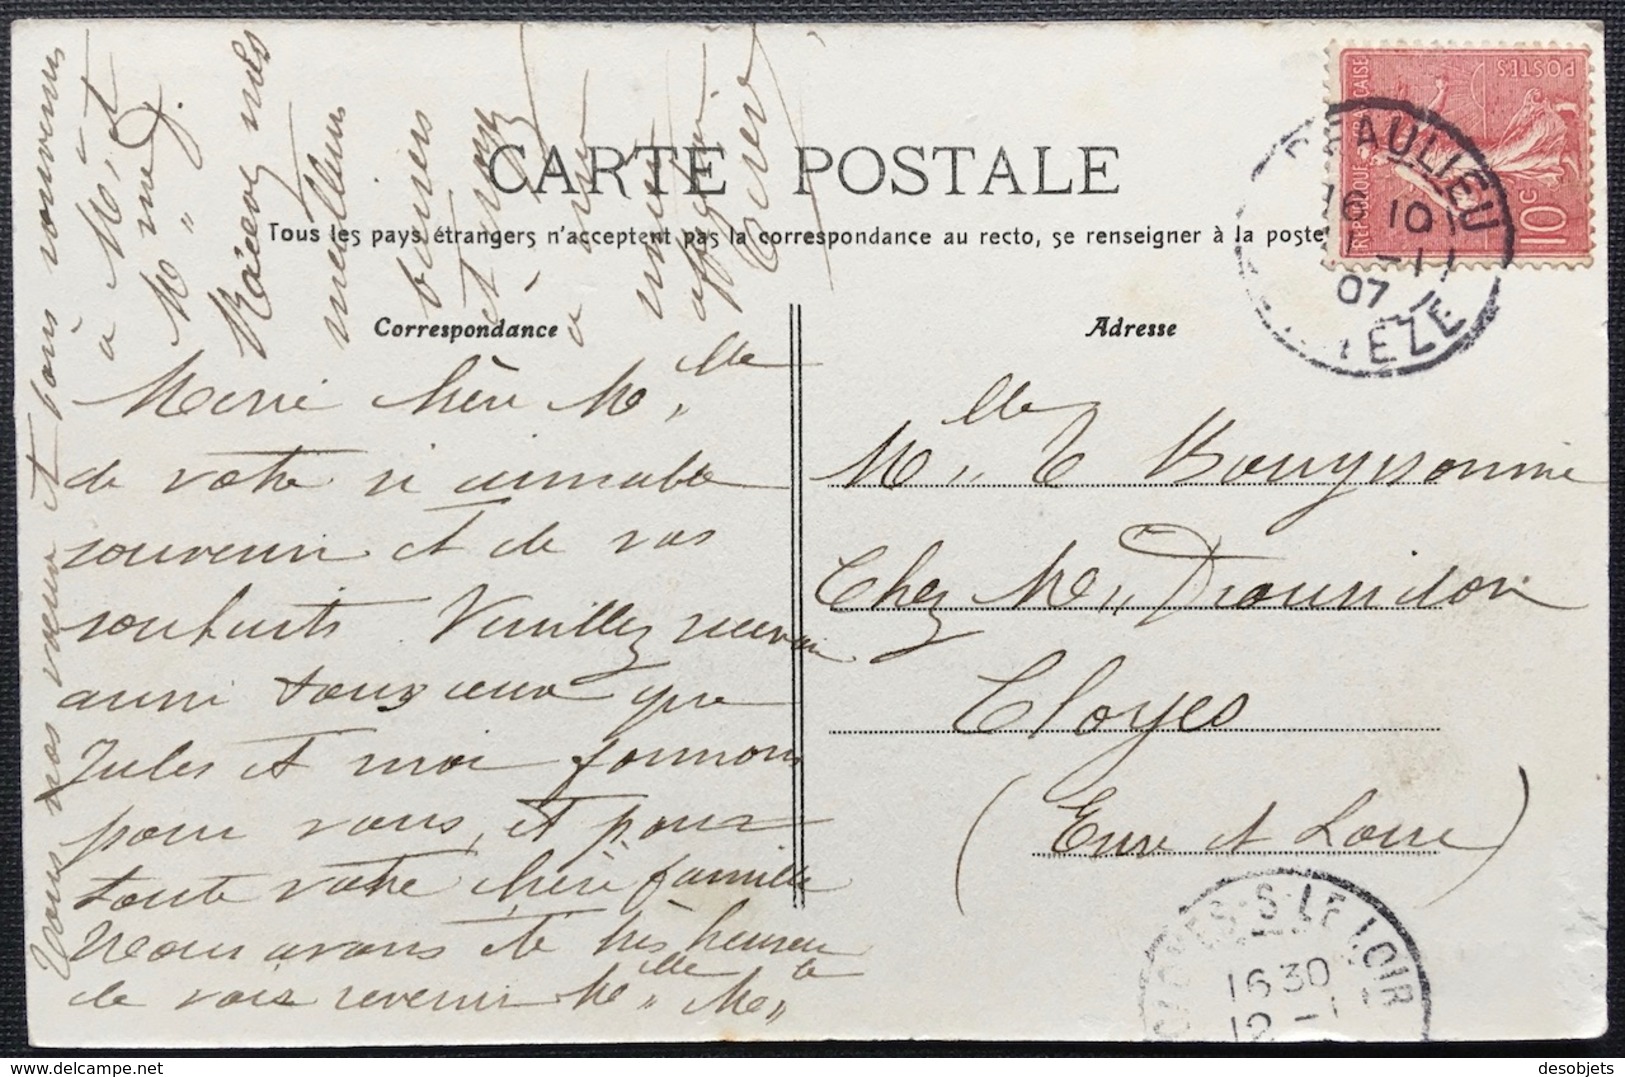 CARTE POSTALE
Tous les pays étrangers n'acceptent pas la correspondance au recto, se renseigner à la poste
Correspondance
Adresse
REPUBLIQUE FRANÇAISE
POSTES
10c
BEAULIEU
16 10
11-1
07
CORREZE
Merci chère Melle
de votre si aimable
souvenir et de vos
souhaits. Veuillez recevoir
aussi tous ceux que
Jules et moi formons
pour vous, et pour
toute votre chère famille
Nous avons été très heureux
de vois revenir Melle
Nous nos vœux et bons souvenirs
à Mr et
Mme
Recevez mes
meilleurs
baisers
et
à
Melle C Bouyssonnie
Chez Me
Cloyes
(Eure et Loire)
CLOYES-S-LE LOIR
16 30
12 -1
desobjets